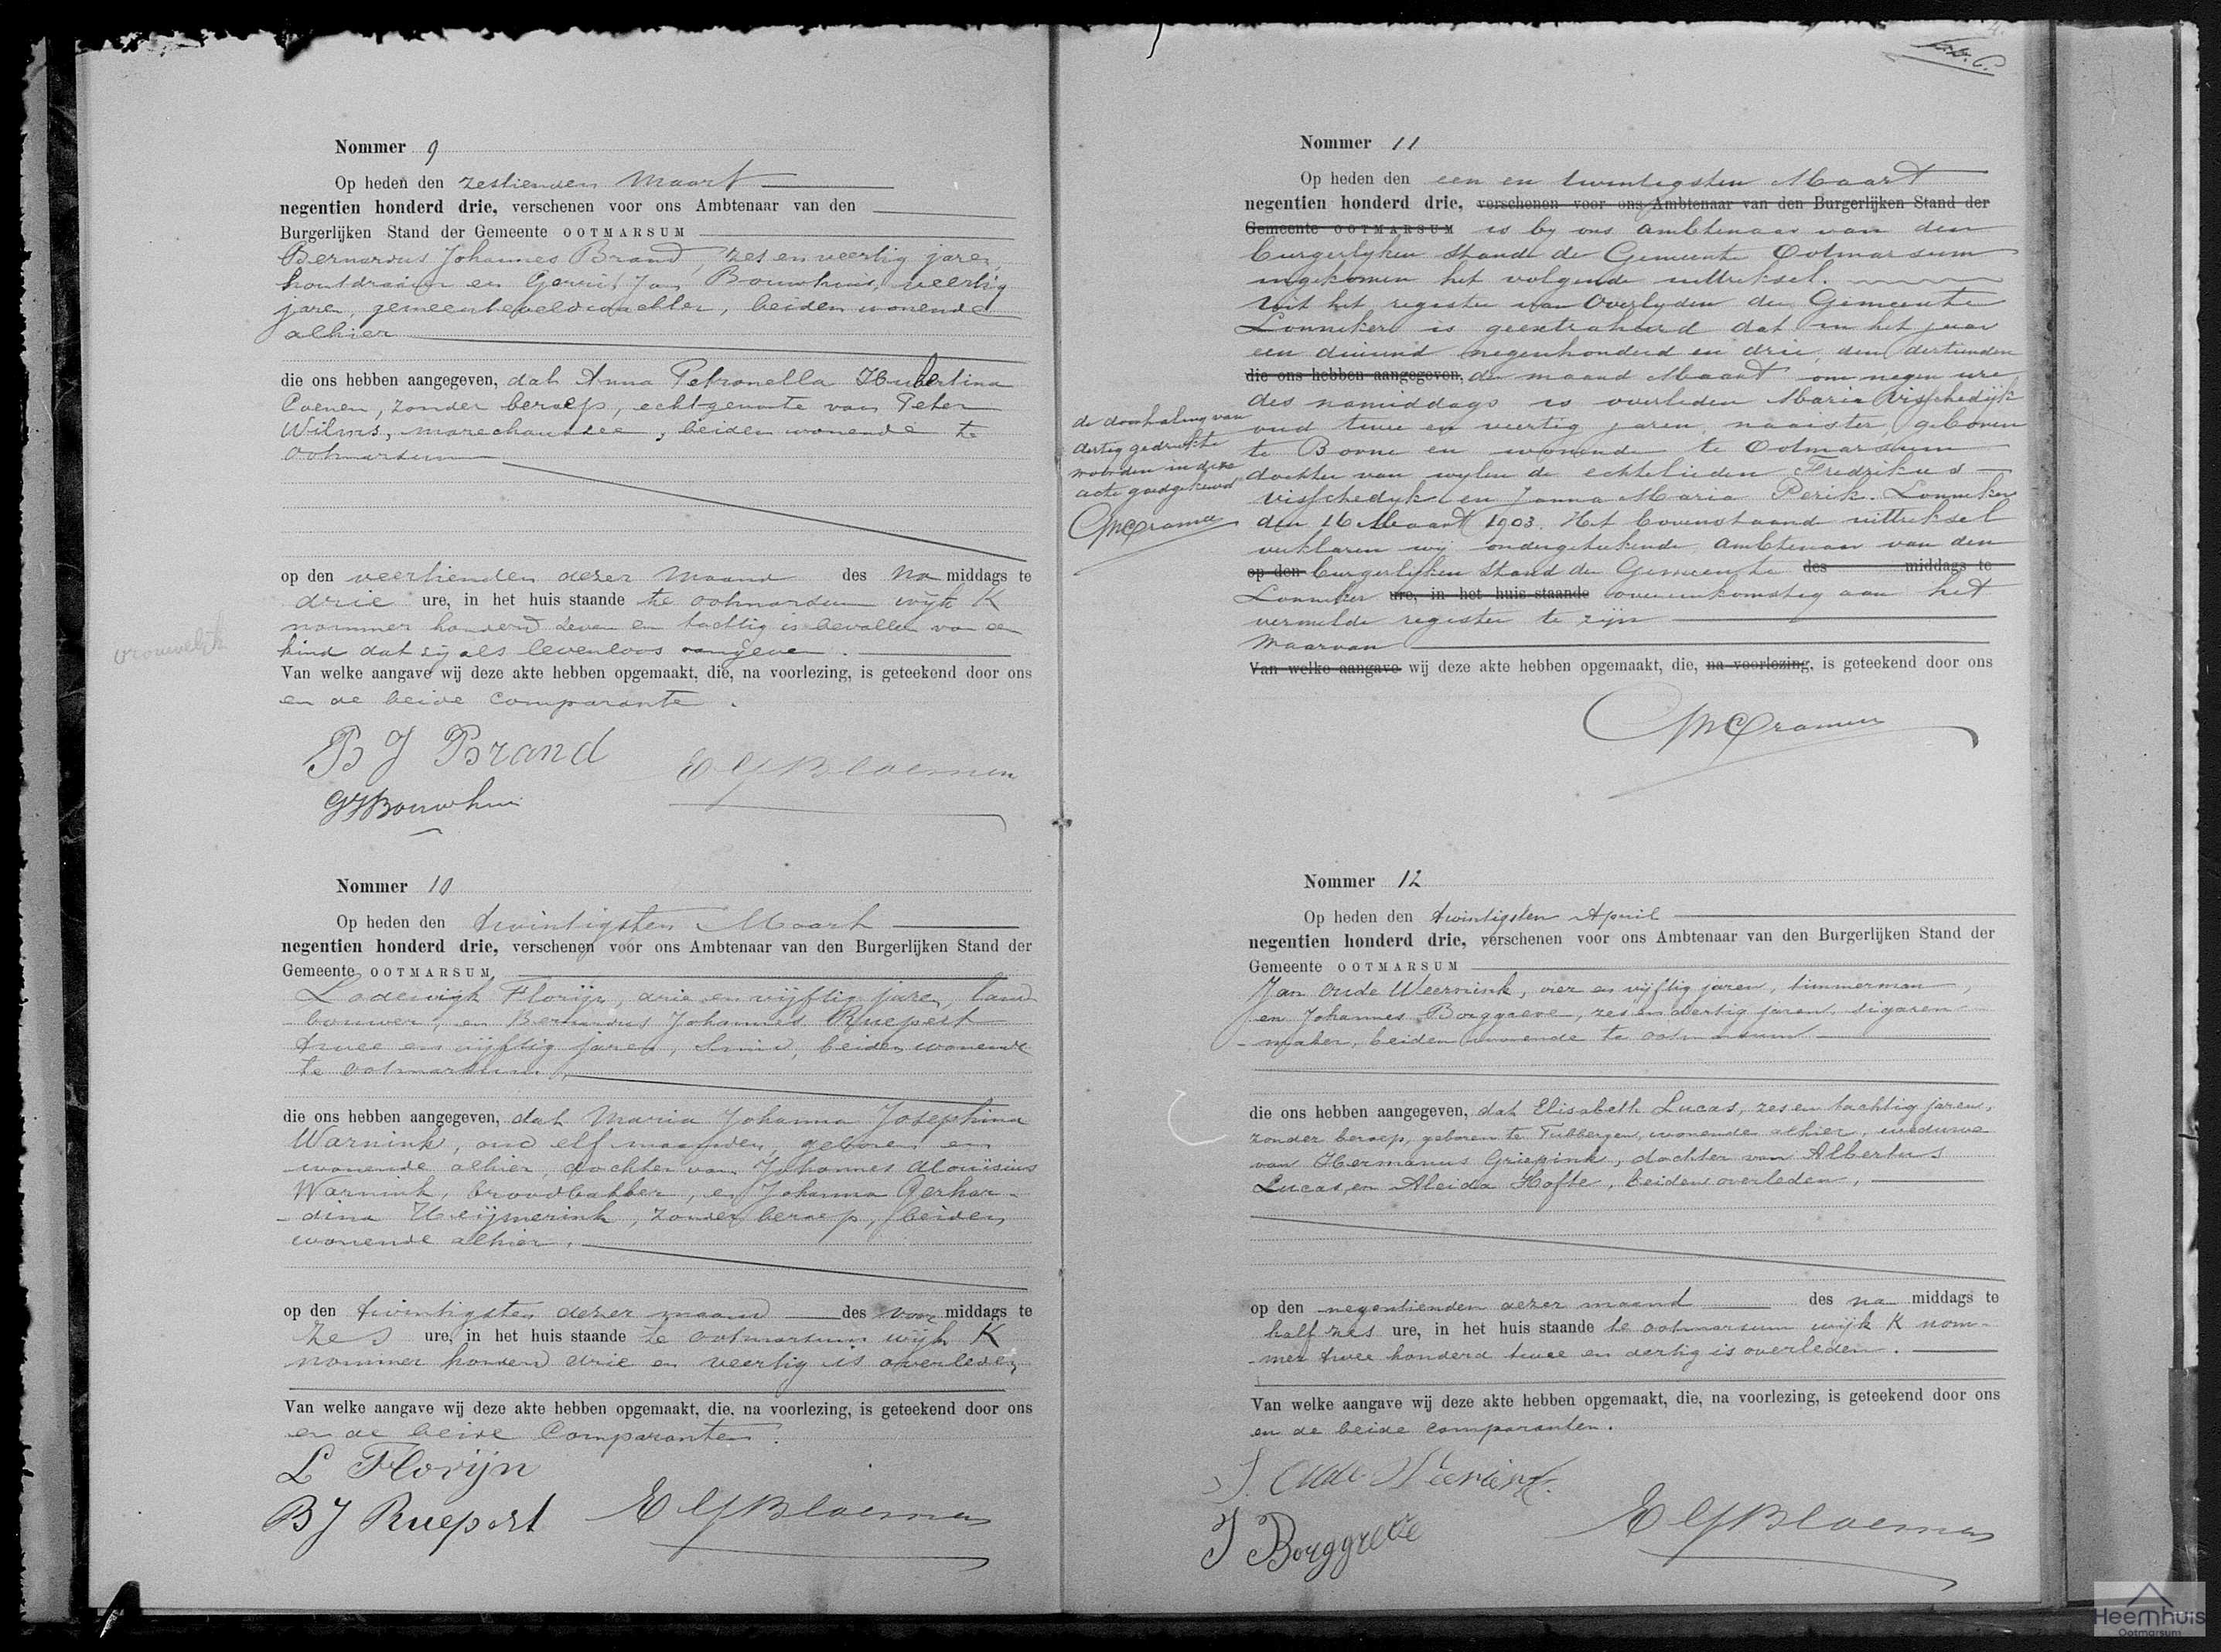 Nommer 9
Op heden den zestienden Maart
negentien honderd drie, verschenen voor ons Ambtenaar van den
Burgerlijken Stand der Gemeente OOTMARSUM
Bernardus Johannes Brand, zes en veertig jaren,
houtdraaier en Gerrit Jan Bouwhuis, veertig
jaren, gemeenteveldwachter, beiden wonende
alhier
die ons hebben aangegeven, dat Anna Petronella Hubertina
Coenen, zonder beroep, echtgenoote van Peter
Wilms, marechaussee, beiden wonende te
Ootmarsum
op den veertienden dezer maand des na middags te
drie ure, in het huis staande te Ootmarsum wijk K
nommer honderd zeven en tachtig is bevallen van een
vrouwelijk
kind dat zij als levenloos aangeven.
Van welke aangave wij deze akte hebben opgemaakt, die, na voorlezing, is geteekend door ons
en de beide Comparante.
B J Brand
GJBouwhuis
Bloemen
Nommer 10
Op heden den twintigsten Maart
negentien honderd drie, verschenen voor ons Ambtenaar van den Burgerlijken Stand der
Gemeente OOTMARSUM
Lodewigk Florijn, drie en vijftig jaren, land
bouwer, en Bernardus Johannes Ruepert
twee en vijftig jaren, smid, beiden wonende
te Ootmarsum,
die ons hebben aangegeven, dat Maria Johanna Josephina
Warnink, oud elf maanden, geboren en
wonende alhier, dochter van Johannes Aloüisius
Warnink, broodbakker, en Johanna Gerhar-
-dina Heijmerink, zonder beroep, beiden
wonende alhier,
op den twintigsten dezer maand des voor middags te
zes ure, in het huis staande te Ootmarsum wijk K
nommer honderd drie en veertig is overleden
Van welke aangave wij deze akte hebben opgemaakt, die, na voorlezing, is geteekend door ons
en de beide Comparanten.
L Florijn
B J Ruepert
Bloemen
Nommer 11
Op heden den een en twintigsten Maart
negentien honderd drie, verschenen voor ons Ambtenaar van den Burgerlijken Stand der
Gemeente OOTMARSUM is by ons Ambtenaar van den
burgerlyken Stand der Gemeente Ootmarsum
ingekomen het volgende uittreksel.
Uit het register van Overlyden der Gemeente
Lonneker is geextraheerd dat in het jaar
een duizend negenhonderd en drie, den dertienden
die ons hebben aangegeven, der maand Maart om negen ure
des namiddags is overleden Maria Visschedijk
oud twee en veertig jaren, naaister, geboren
te Borne en wonende te Ootmarsum
dochter van wylen de echtelieden Fredrikus
Visschedyk en Janna Maria Perik. Lonneker
den 16 Maart 1903. Het bovenstaand uittreksel
verklaren wij ondergeteekende Ambtenaar van den
op den burgerlyken Stand der Gemeente des middags te
Lonneker ure, in het huis staande overeenkomstig aan het
vermelde register te zijn
Waarvan
Van welke aangave wij deze akte hebben opgemaakt, die, na voorlezing, is geteekend door ons
Cramer
de doorhaling van
dertig gedrukte
woorden in deze
acte goedgekeurd
Cramer
Nommer 12
Op heden den twintigsten April
negentien honderd drie, verschenen voor ons Ambtenaar van den Burgerlijken Stand der
Gemeente OOTMARSUM
Jan Oude Weernink, vier en vijftig jaren, timmerman,
en Johannes Borggreve, zes en dertig jaren, sigaren
-maker, beiden wonende te Ootmarsum
die ons hebben aangegeven, dat Elisabeth Lucas, zes en tachtig jaren,
zonder beroep, geboren te Tubbergen, wonende alhier, weduwe
van Hermanus Griepink, dochter van Albertus
Lucas, en Aleida Hofte, beiden overleden,
op den negentienden dezer maand des na middags te
half zes ure, in het huis staande te Ootmarsum wijk K nom-
-mer twee honderd twee en dertig is overleden.
Van welke aangave wij deze akte hebben opgemaakt, die, na voorlezing, is geteekend door ons
en de beide comparanten.
J. Oude Weernink.
J Borggreve
Bloemen
Heemhuis
Ootmarsum